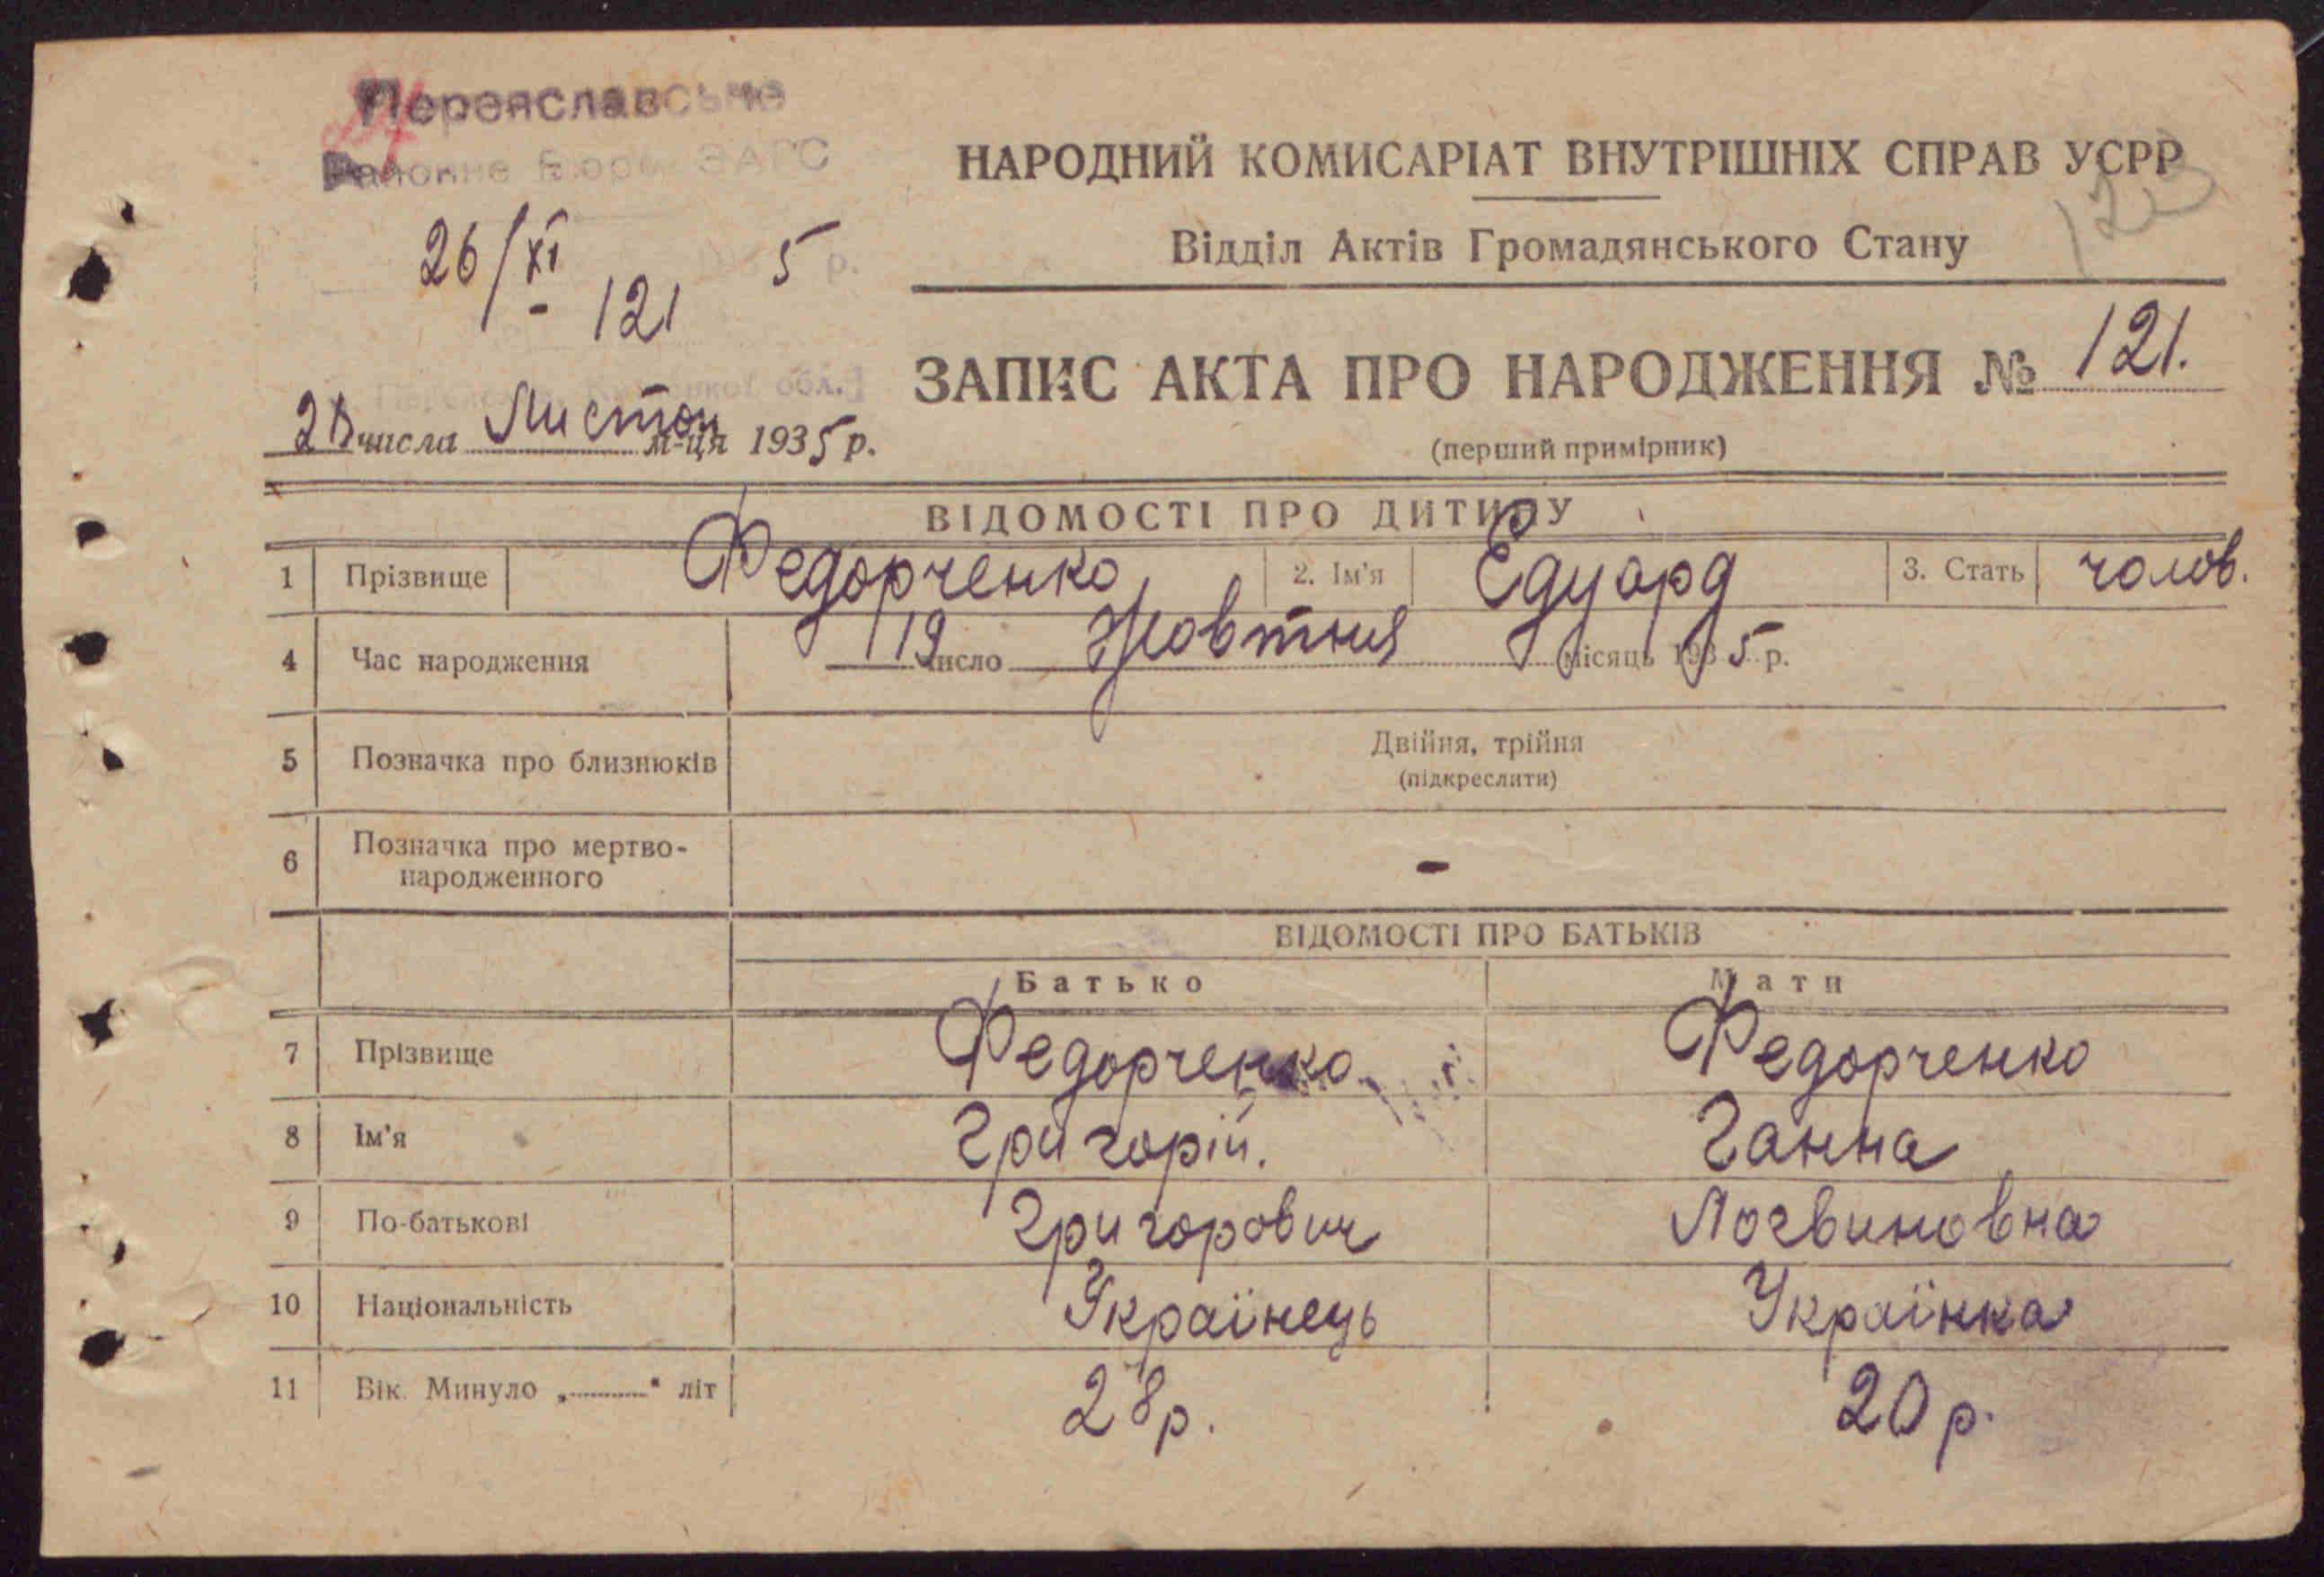 Переяславське
Районне Бюро ЗАГС
26/XI 5 р.
121
НАРОДНИЙ КОМИСАРІАТ ВНУТРІШНІХ СПРАВ УСРР
123
Відділ Актів Громадянського Стану
обл.
числа Листоп м-ця 1935 р.
ЗАПИС АКТА ПРО НАРОДЖЕННЯ № 121.
(перший примірник)
ВІДОМОСТІ ПРО ДИТИНУ
1 Прізвище Федорченко 2. Ім'я Едуард 3. Стать чолов.
4 Час народження 19 число Жовтня місяць 1935 р.
5 Позначка про близнюків Двійня, трійня
(підкреслити)
6 Позначка про мертво-
народженного -
ВІДОМОСТІ ПРО БАТЬКІВ
Батько Мати
7 Прізвище Федорченко Федорченко
8 Ім'я Григорій. Ганна
9 По-батькові Григорович Логвиновна
10 Національність Українець Українка
11 Вік. Минуло „......" літ 28 р. 20 р.